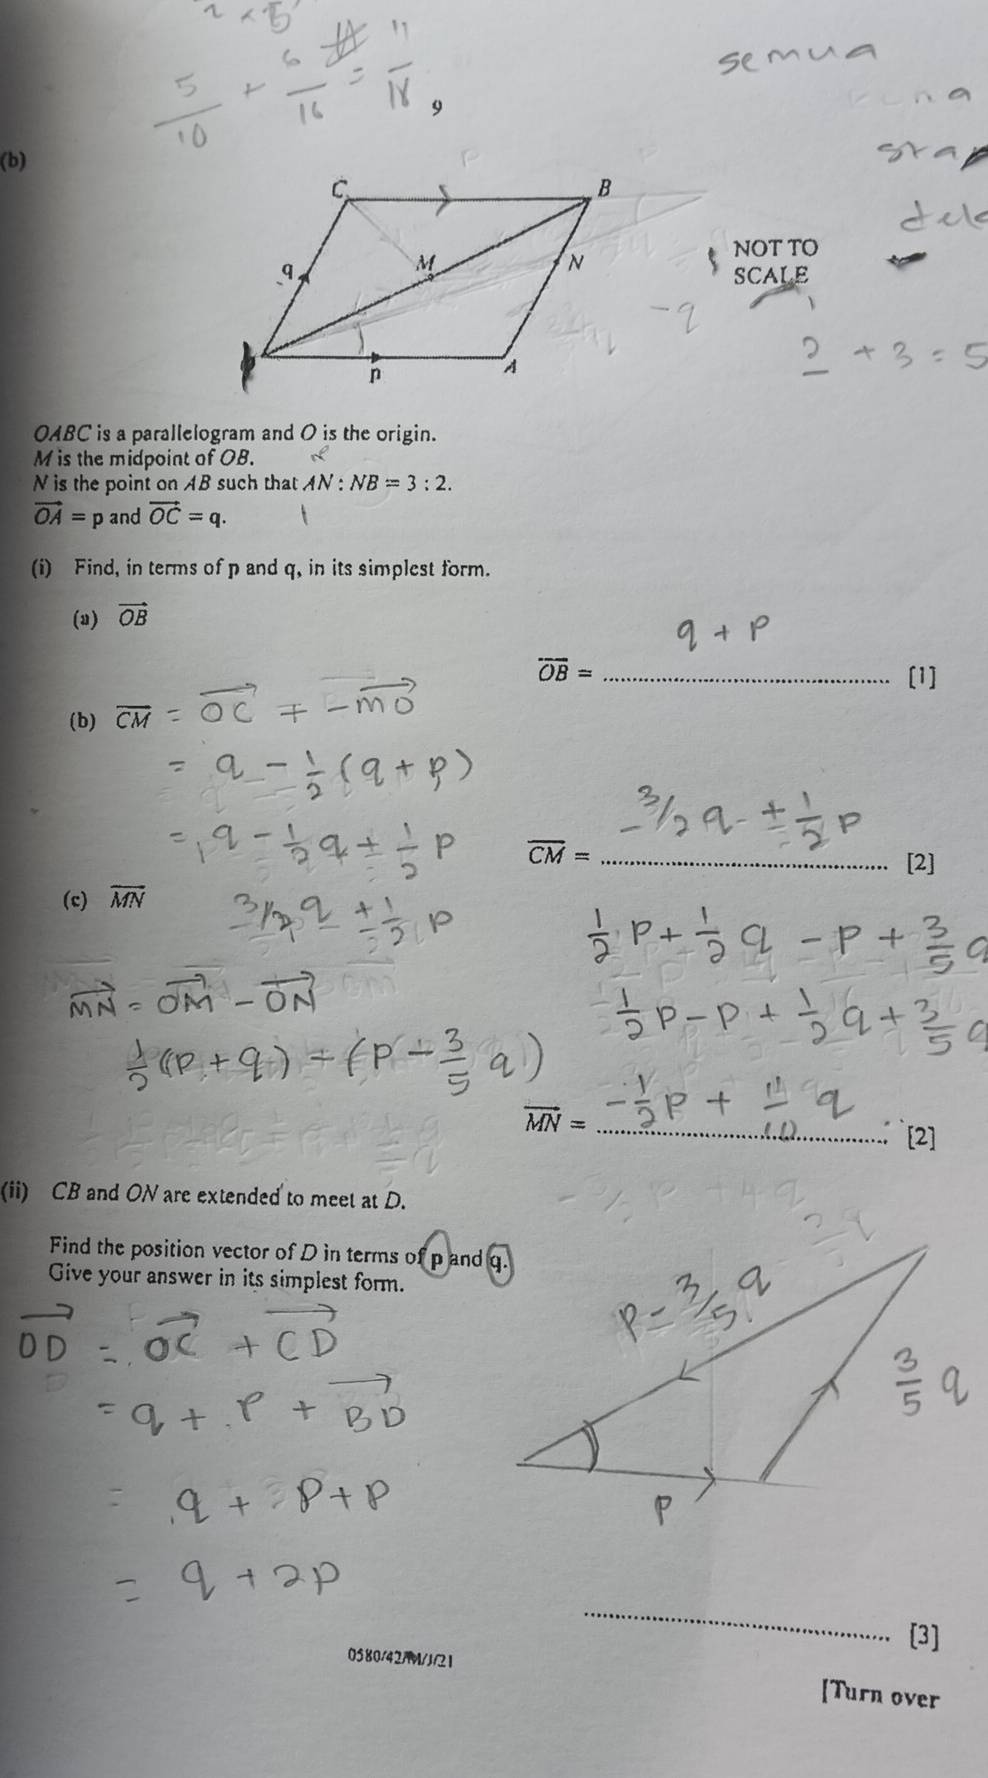 5/10 + 6/16 = 11/18
9
semua
(b)
C
B
q
M
N
NOT TO
SCALE
-q
2 + 3 = 5
p
A
OABC is a parallelogram and O is the origin.
M is the midpoint of OB.
N is the point on AB such that AN : NB = 3 : 2.
OA = p and OC = q.
(i) Find, in terms of p and q, in its simplest form.
(a) OB
q + p
OB = .......... [1]
(b) CM = OC + -MO
= q - 1/2 (q + p)
= q - 1/2 q ± 1/2 p
-3/2 q ± 1/2 p
CM = .......... [2]
(c) MN
3/2 q ± 1/2 p
1/2 p + 1/2 q - p + 3/5 q
MN = OM - ON
1/2 p - p + 1/2 q + 3/5 q
1/2 (p + q) - (p - 3/5 q)
MN = -1/2 p + 11/10 q [2]
(ii) CB and ON are extended to meet at D.
Find the position vector of D in terms of p and q.
Give your answer in its simplest form.
p = 3/5 q
OD = OC + CD
3/5 q
= q + p + BD
= q + p + p
p
= q + 2p
.......... [3]
0580/42/M/J/21
[Turn over